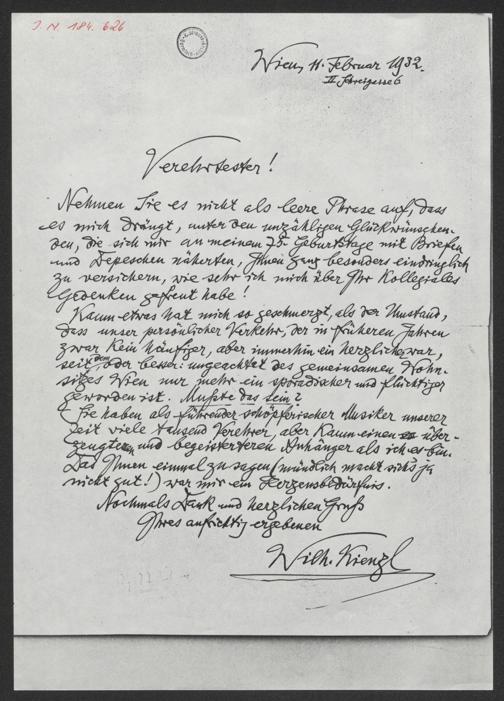 I. N. 184.626
Wien, 11. Februar 1932.
II Schreigasse 6
Verehrtester!
Nehmen Sie es nicht als leere Phrase auf, dass
es mich drängt, unter den unzähligen Glückwünschen-
den, die sich mir an meinem 75. Geburtstage mit Briefen
und Depeschen näherten, Ihnen ganz besonders eindringlich
zu versichern, wie sehr ich mich über Ihr kollegiales
Gedenken gefreut habe!
Kaum etwas hat mich so geschmerzt, als der Umstand,
dass unser persönlicher Verkehr, der in früheren Jahren
zwar kein häufiger, aber immerhin ein herzlicher war,
seitdem, oder besser: ungeachtet des gemeinsamen Wohn-
sitzes Wien nur mehr ein sporadischer und flüchtiger
geworden ist. Musste das sein?
Sie haben als führender schöpferischer Musiker unserer
Zeit viele tausend Verehrer, aber kaum einen über-
zeugteren und begeisterteren Anhänger als ich es bin.
Das Ihnen einmal zu sagen (mündlich macht sich's ja
nicht gut!) war mir ein Herzensbedürfnis.
Nochmals Dank und herzlichen Gruss
Ihres aufrichtig ergebenen
Wilh. Kienzl